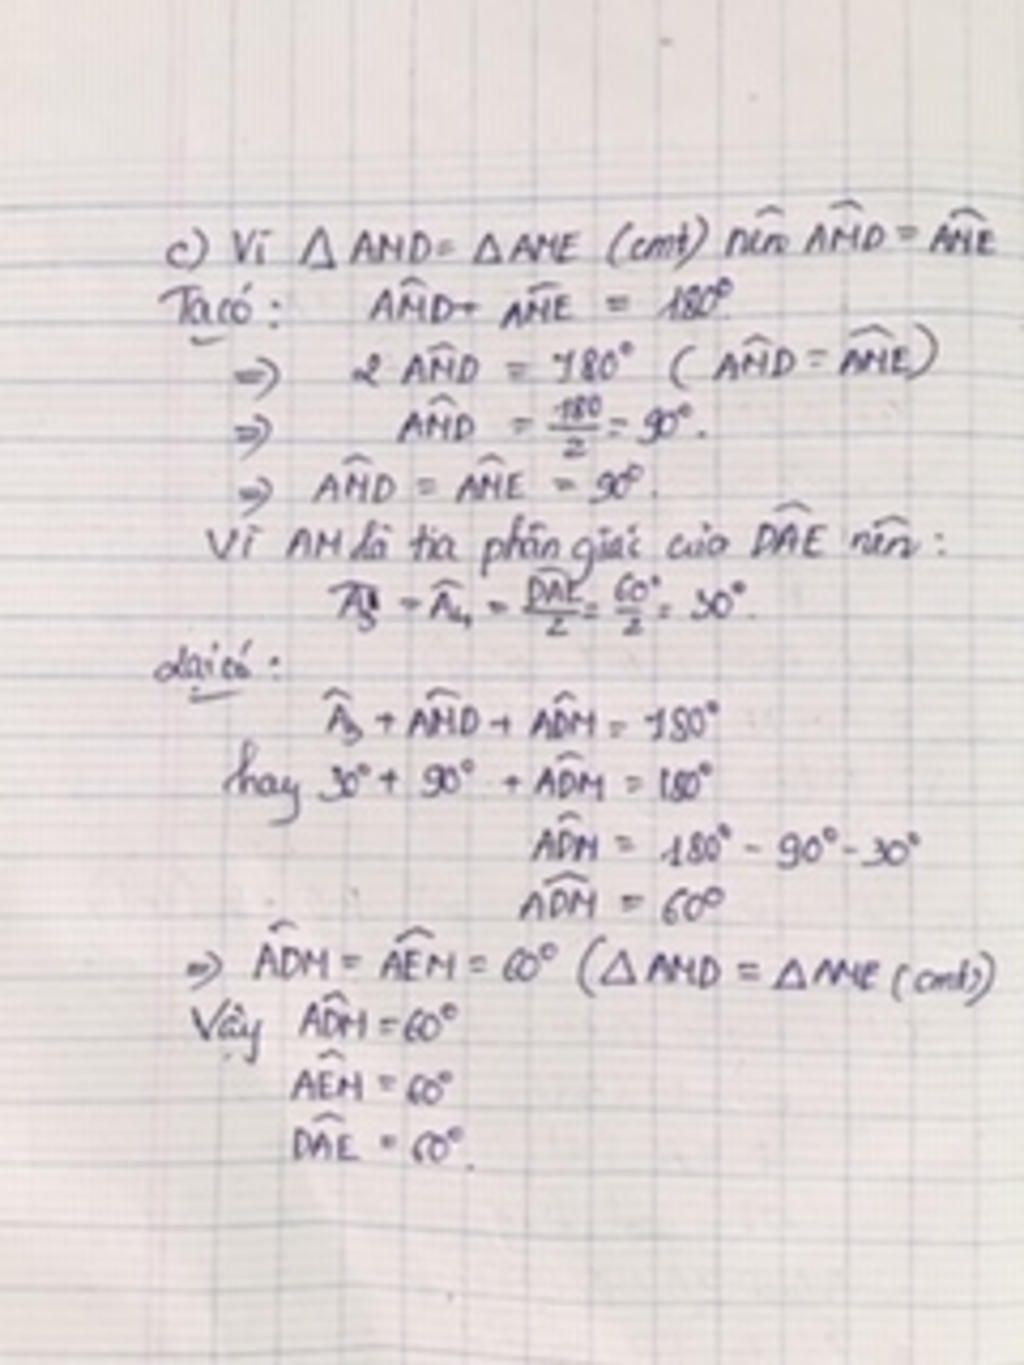 c) Vì △ AMD = △ AME (cmt) nên \widehat{AMD} = \widehat{AME}
Ta có : \widehat{AMD} + \widehat{AME} = 180°
=> 2 \widehat{AMD} = 180° ( \widehat{AMD} = \widehat{AME} )
=> \widehat{AMD} = \frac{180}{2} = 90°.
=> \widehat{AMD} = \widehat{AME} = 90°.
Vì AM là tia phân giác của \widehat{DAE} nên :
\widehat{A}_3 = \widehat{A}_4 = \frac{\widehat{DAE}}{2} = \frac{60°}{2} = 30°.
Lại có :
\widehat{A}_3 + \widehat{AMD} + \widehat{ADM} = 180°
hay 30° + 90° + \widehat{ADM} = 180°
\widehat{ADM} = 180° - 90° - 30°
\widehat{ADM} = 60°
=> \widehat{ADM} = \widehat{AEM} = 60° ( △ AMD = △ AME (cmt)
Vậy \widehat{ADM} = 60°
\widehat{AEM} = 60°
\widehat{DAE} = 60°.